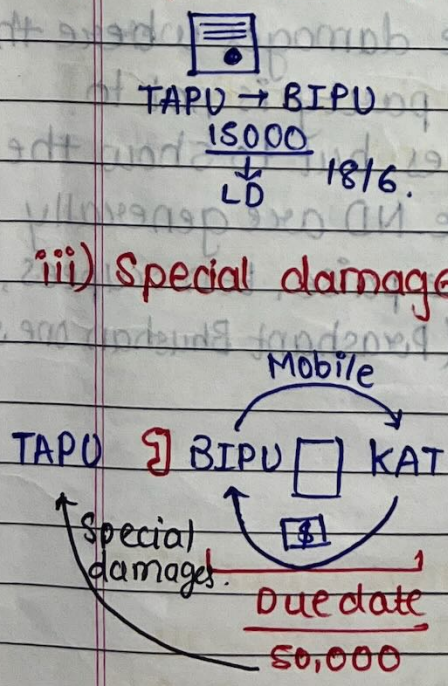 TAPU → BIPU
15000
↓
LD 18/6.
iii) Special damage
Mobile
TAPU BIPU KAT
$
Special
damages.
Due date
50,000